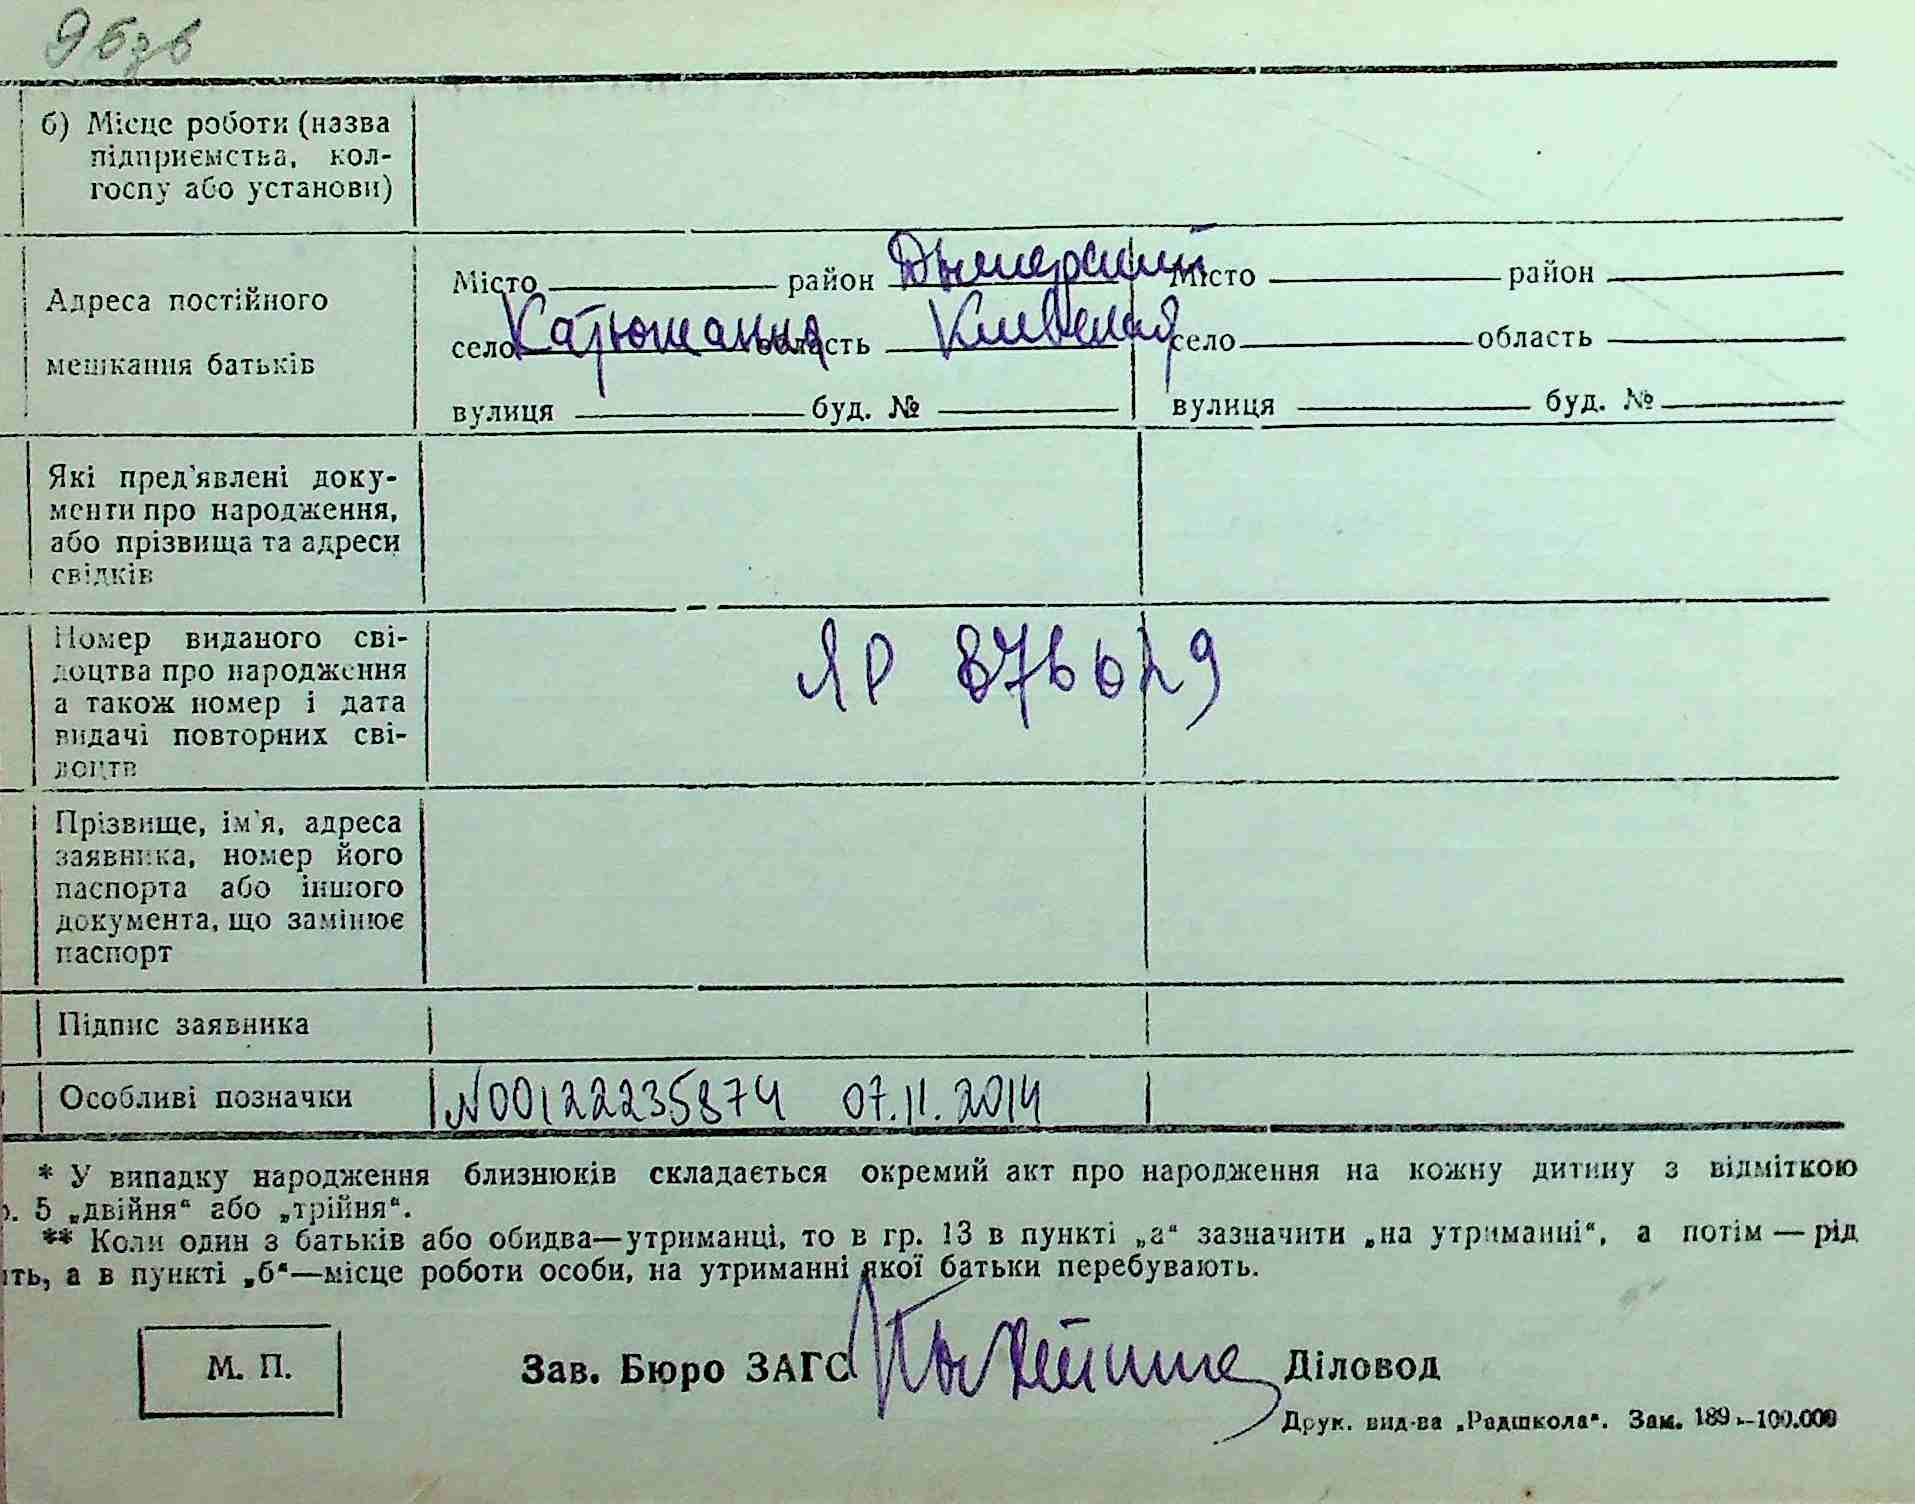 96зв
б) Місце роботи (назва
підприємства, кол-
госпу або установи)
Адреса постійного
мешкання батьків
Місто район Дымерский Місто район
село Катюжанка область Киевская село область
вулиця буд. № вулиця буд. №
Які пред'явлені доку-
менти про народження,
або прізвища та адреси
свідків
Номер виданого сві-
доцтва про народження
а також номер і дата
видачі повторних сві-
доцтв
ЯР 876629
Прізвище, ім'я, адреса
заявника, номер його
паспорта або іншого
документа, що замінює
паспорт
Підпис заявника
Особливі позначки
N00122235874 07.11.2014
* У випадку народження близнюків складається окремий акт про народження на кожну дитину з відміткою
р. 5 „двійня“ або „трійня“.
** Коли один з батьків або обидва—утриманці, то в гр. 13 в пункті „а“ зазначити „на утриманні“, а потім — рід
ять, а в пункті „б“—місце роботи особи, на утриманні якої батьки перебувають.
М. П.
Зав. Бюро ЗАГС
Діловод
Друк. вид-ва „Радшкола“. Зам. 189 –100.000